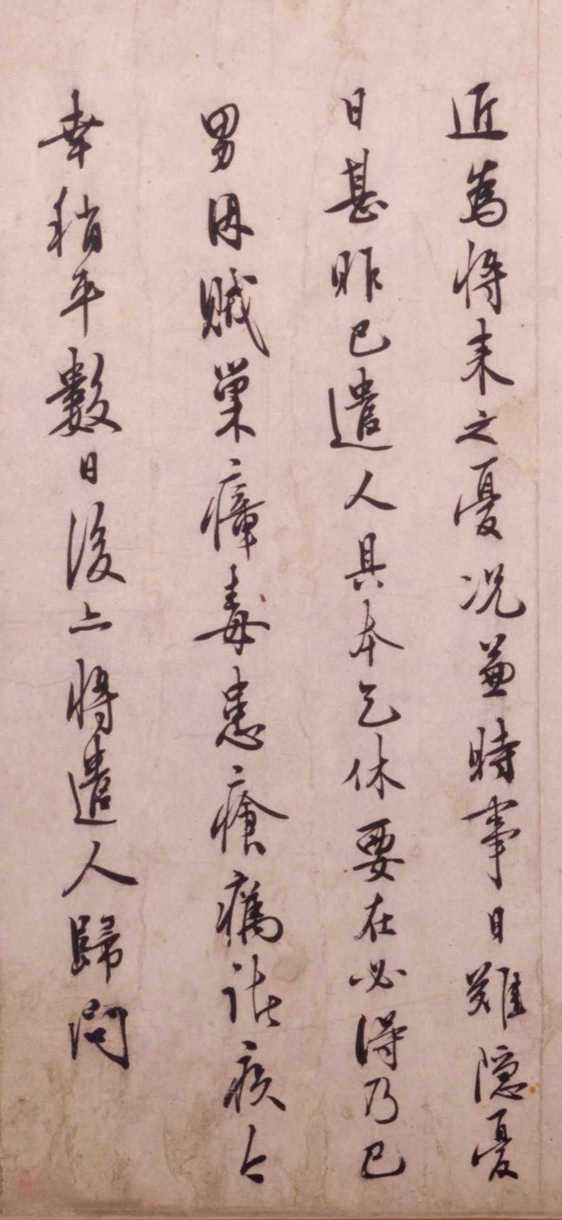 近為將來之憂況兼時事日難隱憂
日甚昨已遣人具本乞休要在必得乃已
男因賊巢瘴毒患瘡癘諸疾今
幸稍平數日後亦將遣人歸問